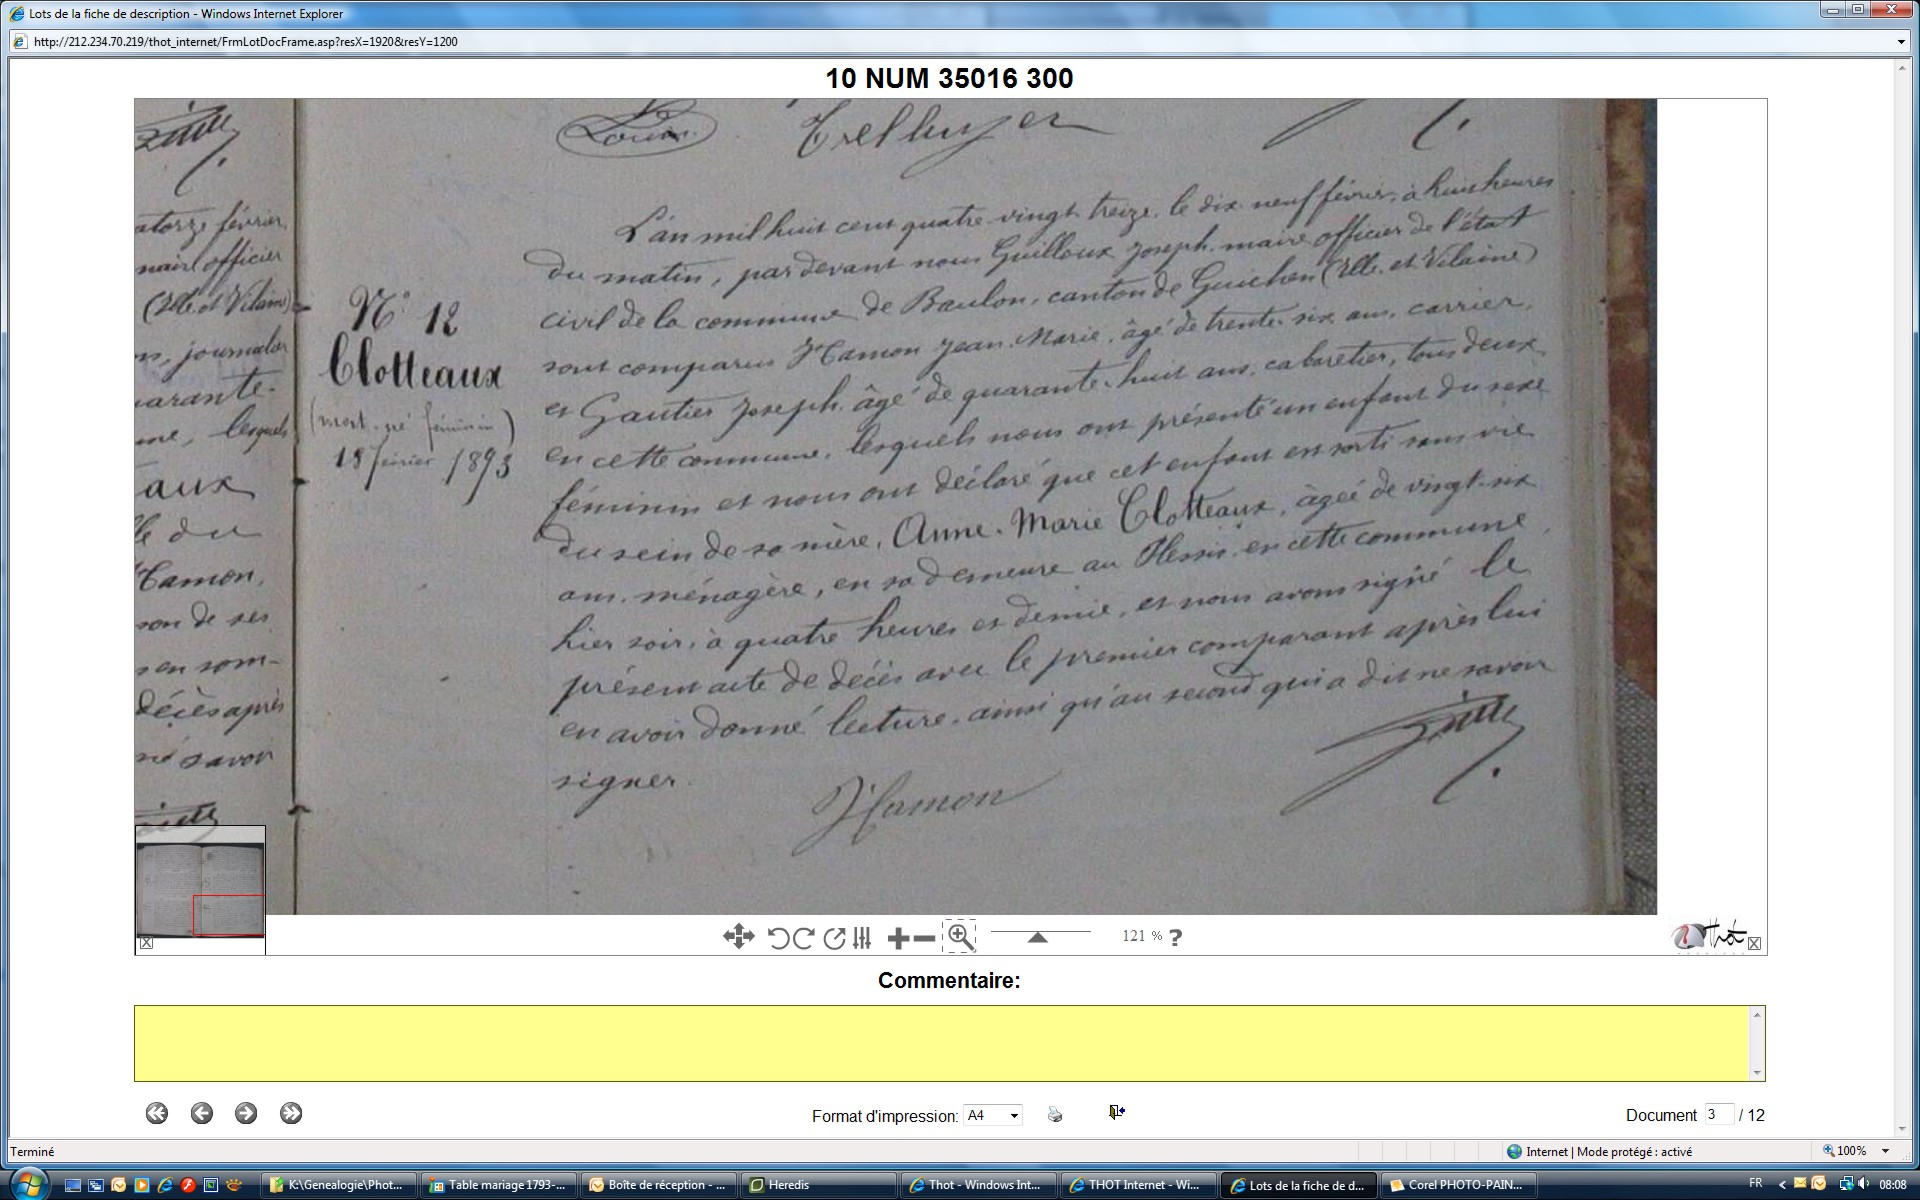 Lots de la fiche de description - Windows Internet Explorer
http://212.234.70.219/thot_internet/FrmLotDocFrame.asp?resX=1920&resY=1200
10 NUM 35016 300
Louis
Trelluyer
atorze février,
maire officier
(Ille et Vilaine)
journalier
uarante-
me, lesquels
aux
lle du
Hamon,
son de ses
s en som-
décès après
né savoir
N° 12
Clotteaux
(mort-né féminin)
18 février 1893
L'an mil huit cent quatre-vingt treize, le dix neuf février, à huit heures
du matin, par devant nous Guilloux Joseph, maire officier de l'état
civil de la commune de Baulon, canton de Guichen (Ille et Vilaine)
sont comparus Hamon Jean Marie, âgé de trente-six ans, carrier,
et Gautier Joseph, âgé de quarante-huit ans, cabaretier, tous deux
en cette commune, lesquels nous ont présenté un enfant du sexe
féminin et nous ont déclaré que cet enfant est sorti sans vie
du sein de sa mère, Anne-Marie Clotteaux, âgée de vingt-six
ans, ménagère, en sa demeure au Plessis, en cette commune,
hier soir, à quatre heures et demie, et nous avons signé le
présent acte de décès avec le premier comparant après lui
en avoir donné lecture, ainsi qu'au second qui a dit ne savoir
signer.
JHamon
121 % ?
Thot
Commentaire:
Format d'impression: A4
Document 3 / 12
Terminé
Internet | Mode protégé : activé
100%
K:\Genealogie\Phot...
Table mariage 1793-...
Boîte de réception - ...
Heredis
Thot - Windows Int...
THOT Internet - Wi...
Lots de la fiche de d...
Corel PHOTO-PAIN...
FR
08:08